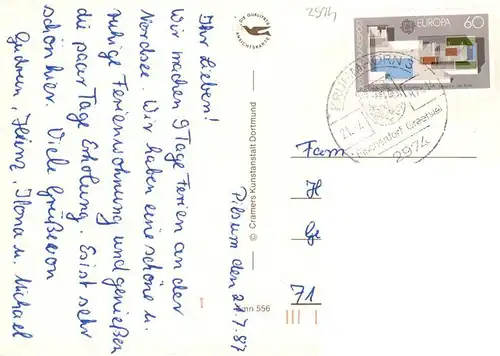 2974
DIE QUALITÄTS
ANSICHTSKARTE
Pilsum den 21.7.87
Ihr Lieben!
Wir machen 9 Tage Ferien an der
Nordsee. Wir haben eine schöne u.
ruhige Ferienwohnung und genießen
die paar Tage Erholung. Es ist sehr
schön hier. Viele Grüße von
Gudrun, Heinz, Ilona u. Michael
© Cramers Kunstanstalt Dortmund
mn 556
EUROPA 60
KRUMMHÖRN 3
21.7.
Fischerdorf Greetsiel
2974
Fam
H
Ge
71